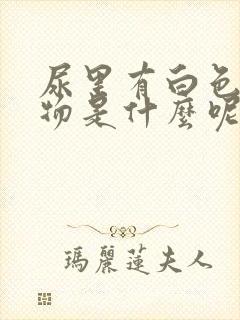 尿里有白色
物是什麼呢
瑪麗蓮夫人